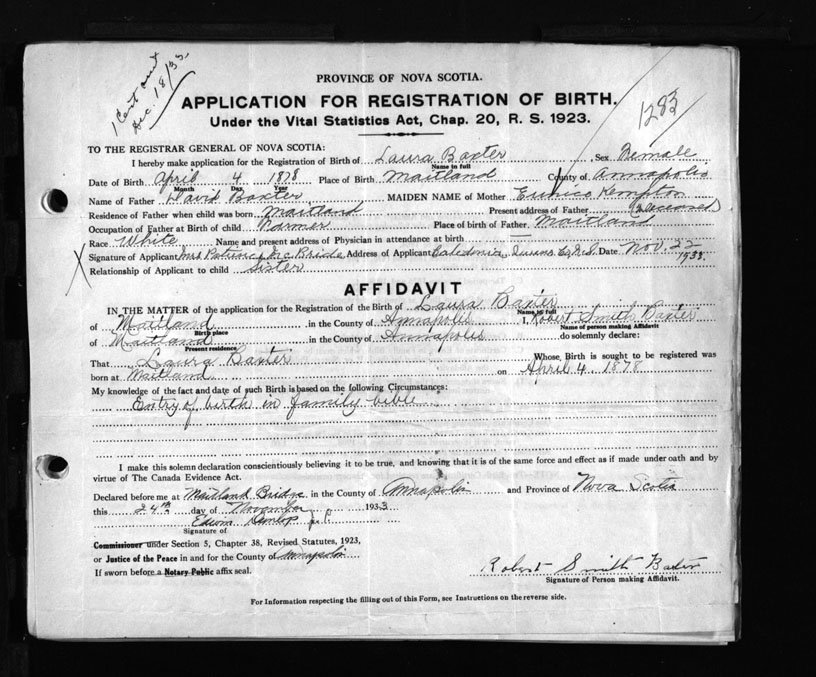 1 Cert out
Dec. 18/33
1283
PROVINCE OF NOVA SCOTIA.
APPLICATION FOR REGISTRATION OF BIRTH.
Under the Vital Statistics Act, Chap. 20, R. S. 1923.
TO THE REGISTRAR GENERAL OF NOVA SCOTIA:
I hereby make application for the Registration of Birth of Laura Baxter, Sex Female
Name in full
Date of Birth April 4 1878 Place of Birth Maitland County of Annapolis
Month Day Year
Name of Father David Baxter MAIDEN NAME of Mother Eunice Kempton
Residence of Father when child was born Maitland Present address of Father (Deceased)
Occupation of Father at Birth of child Farmer Place of birth of Father Maitland
Race White Name and present address of Physician in attendance at birth —
X Signature of Applicant Mrs Patience McBride Address of Applicant Caledonia Queens Co N.S. Date Nov. 22
1933.
Relationship of Applicant to child Sister
AFFIDAVIT
IN THE MATTER of the application for the Registration of the Birth of Laura Baxter
Name in full
of Maitland in the County of Annapolis I, Robert Smith Baxter
Birth place Name of person making Affidavit
of Maitland in the County of Annapolis do solemnly declare:
Present residence
That Laura Baxter Whose Birth is sought to be registered was
born at Maitland on April 4 1878
My knowledge of the fact and date of such Birth is based on the following Circumstances:
Entry of birth in family bible
I make this solemn declaration conscientiously believing it to be true, and knowing that it is of the same force and effect as if made under oath and by
virtue of The Canada Evidence Act.
Declared before me at Maitland Bridge in the County of Annapolis and Province of Nova Scotia
this 24th day of November 1933
Edwin Dunlop J.P.
Signature of
Commissioner under Section 5, Chapter 38, Revised Statutes, 1923,
or Justice of the Peace in and for the County of Annapolis
If sworn before a Notary Public affix seal.
Robert Smith Baxter
Signature of Person making Affidavit.
For Information respecting the filling out of this Form, see Instructions on the reverse side.